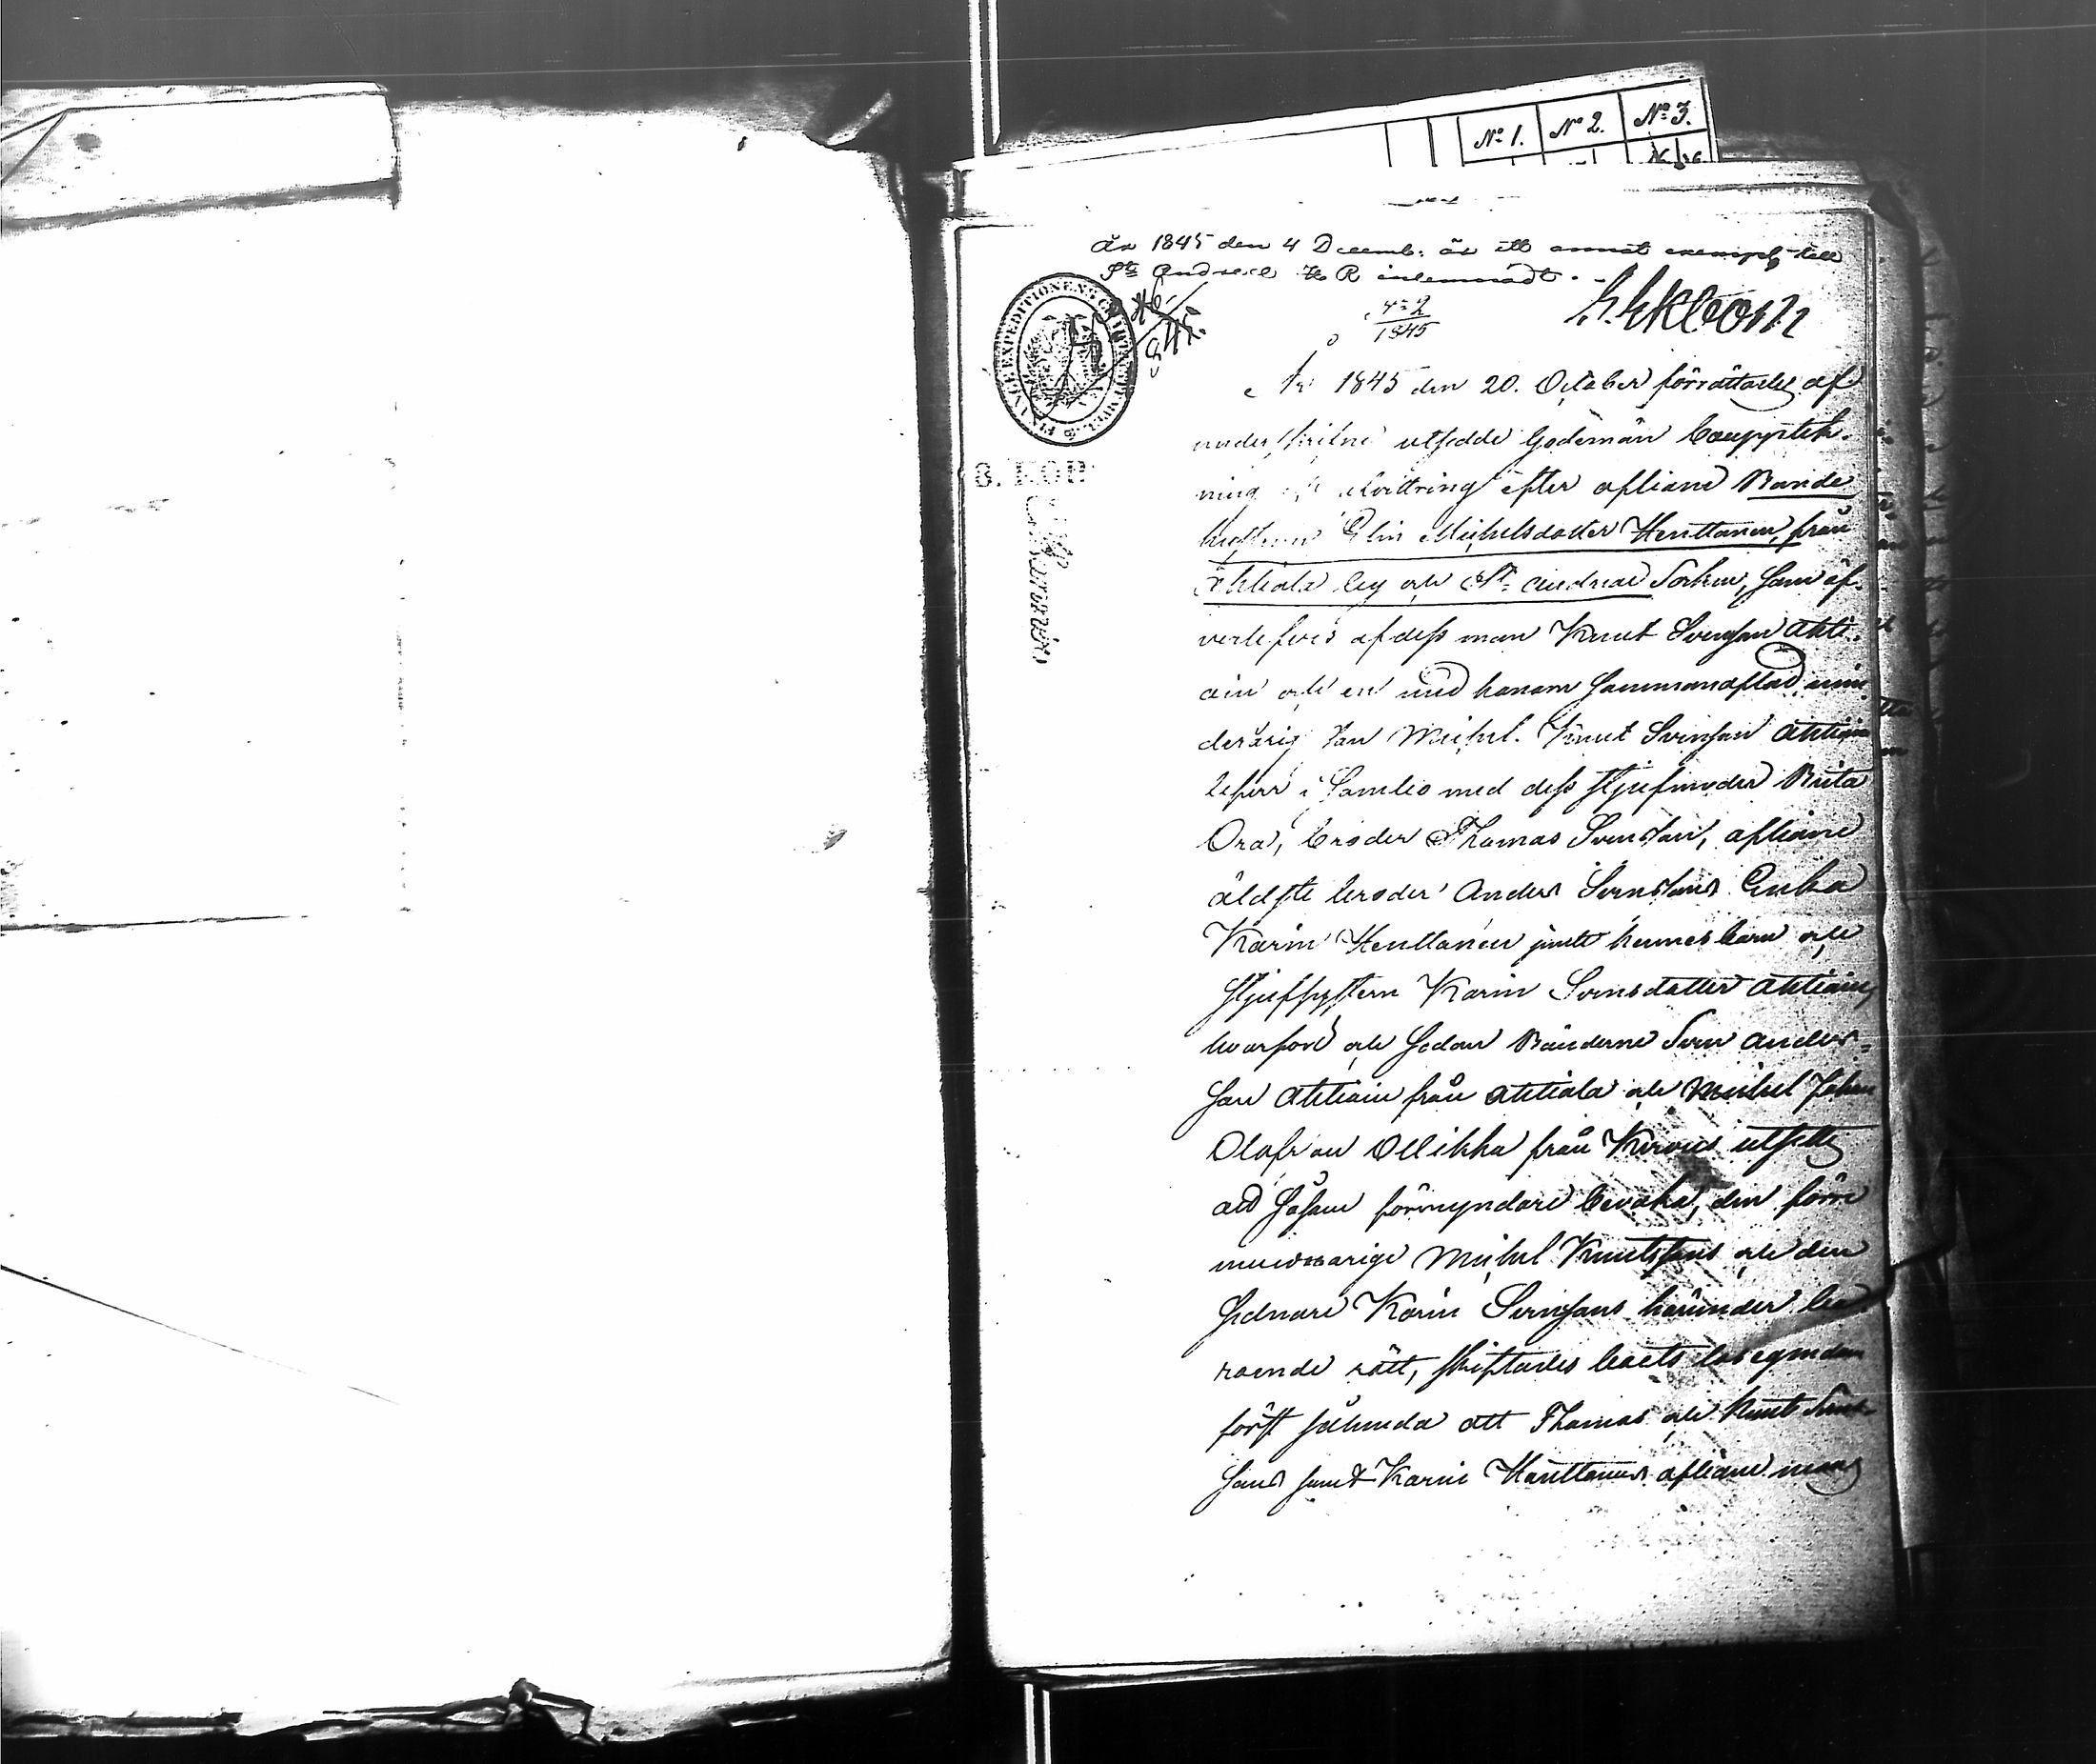 No 1. No 2. No 3.
År 1845 den 4 Decemb: är ett annat exempl till
St Andreæ K R inlemnadt.
No 2
1845
S. Ekbom
8. KOP.
År 1845 den 20. October förrättades af
underskrifne utsedde Godemän bouppteck-
ning och utvittring efter aflidne Bonde
hustrun Elin Michelsdotter Henttanen, från
Ahtiala by och St. Andreae Sochn, som öf-
verlefves af dess man Knut Svensson Ahti-
ain och en med honom sammanaflad min-
derårig son Michel. Knut Svensson Ahtiain
lefver i sambo med dess stjufmoder Brita
Ora, broder Thomas Svensson, aflidne
äldste broder Anders Svensson Enka
Karin Henttanen jemte hennes barn och
stjufsystern Karin Svensdotter Ahtiain,
hvarföre och sedan Bönderne Sven Anders-
son Ahtiain från Ahtiala och Michel Johan
Olofsson Ollikka från utsetts
att såsom förmyndare bevaka, den förre
Michel Knutssons och den
sednare Karin Svenssons härunder be-
roende rätt, skiftades boets lösegendom
först sålunda att Thomas och Knut Svens-
sons samt Karin Henttanens aflidne mans